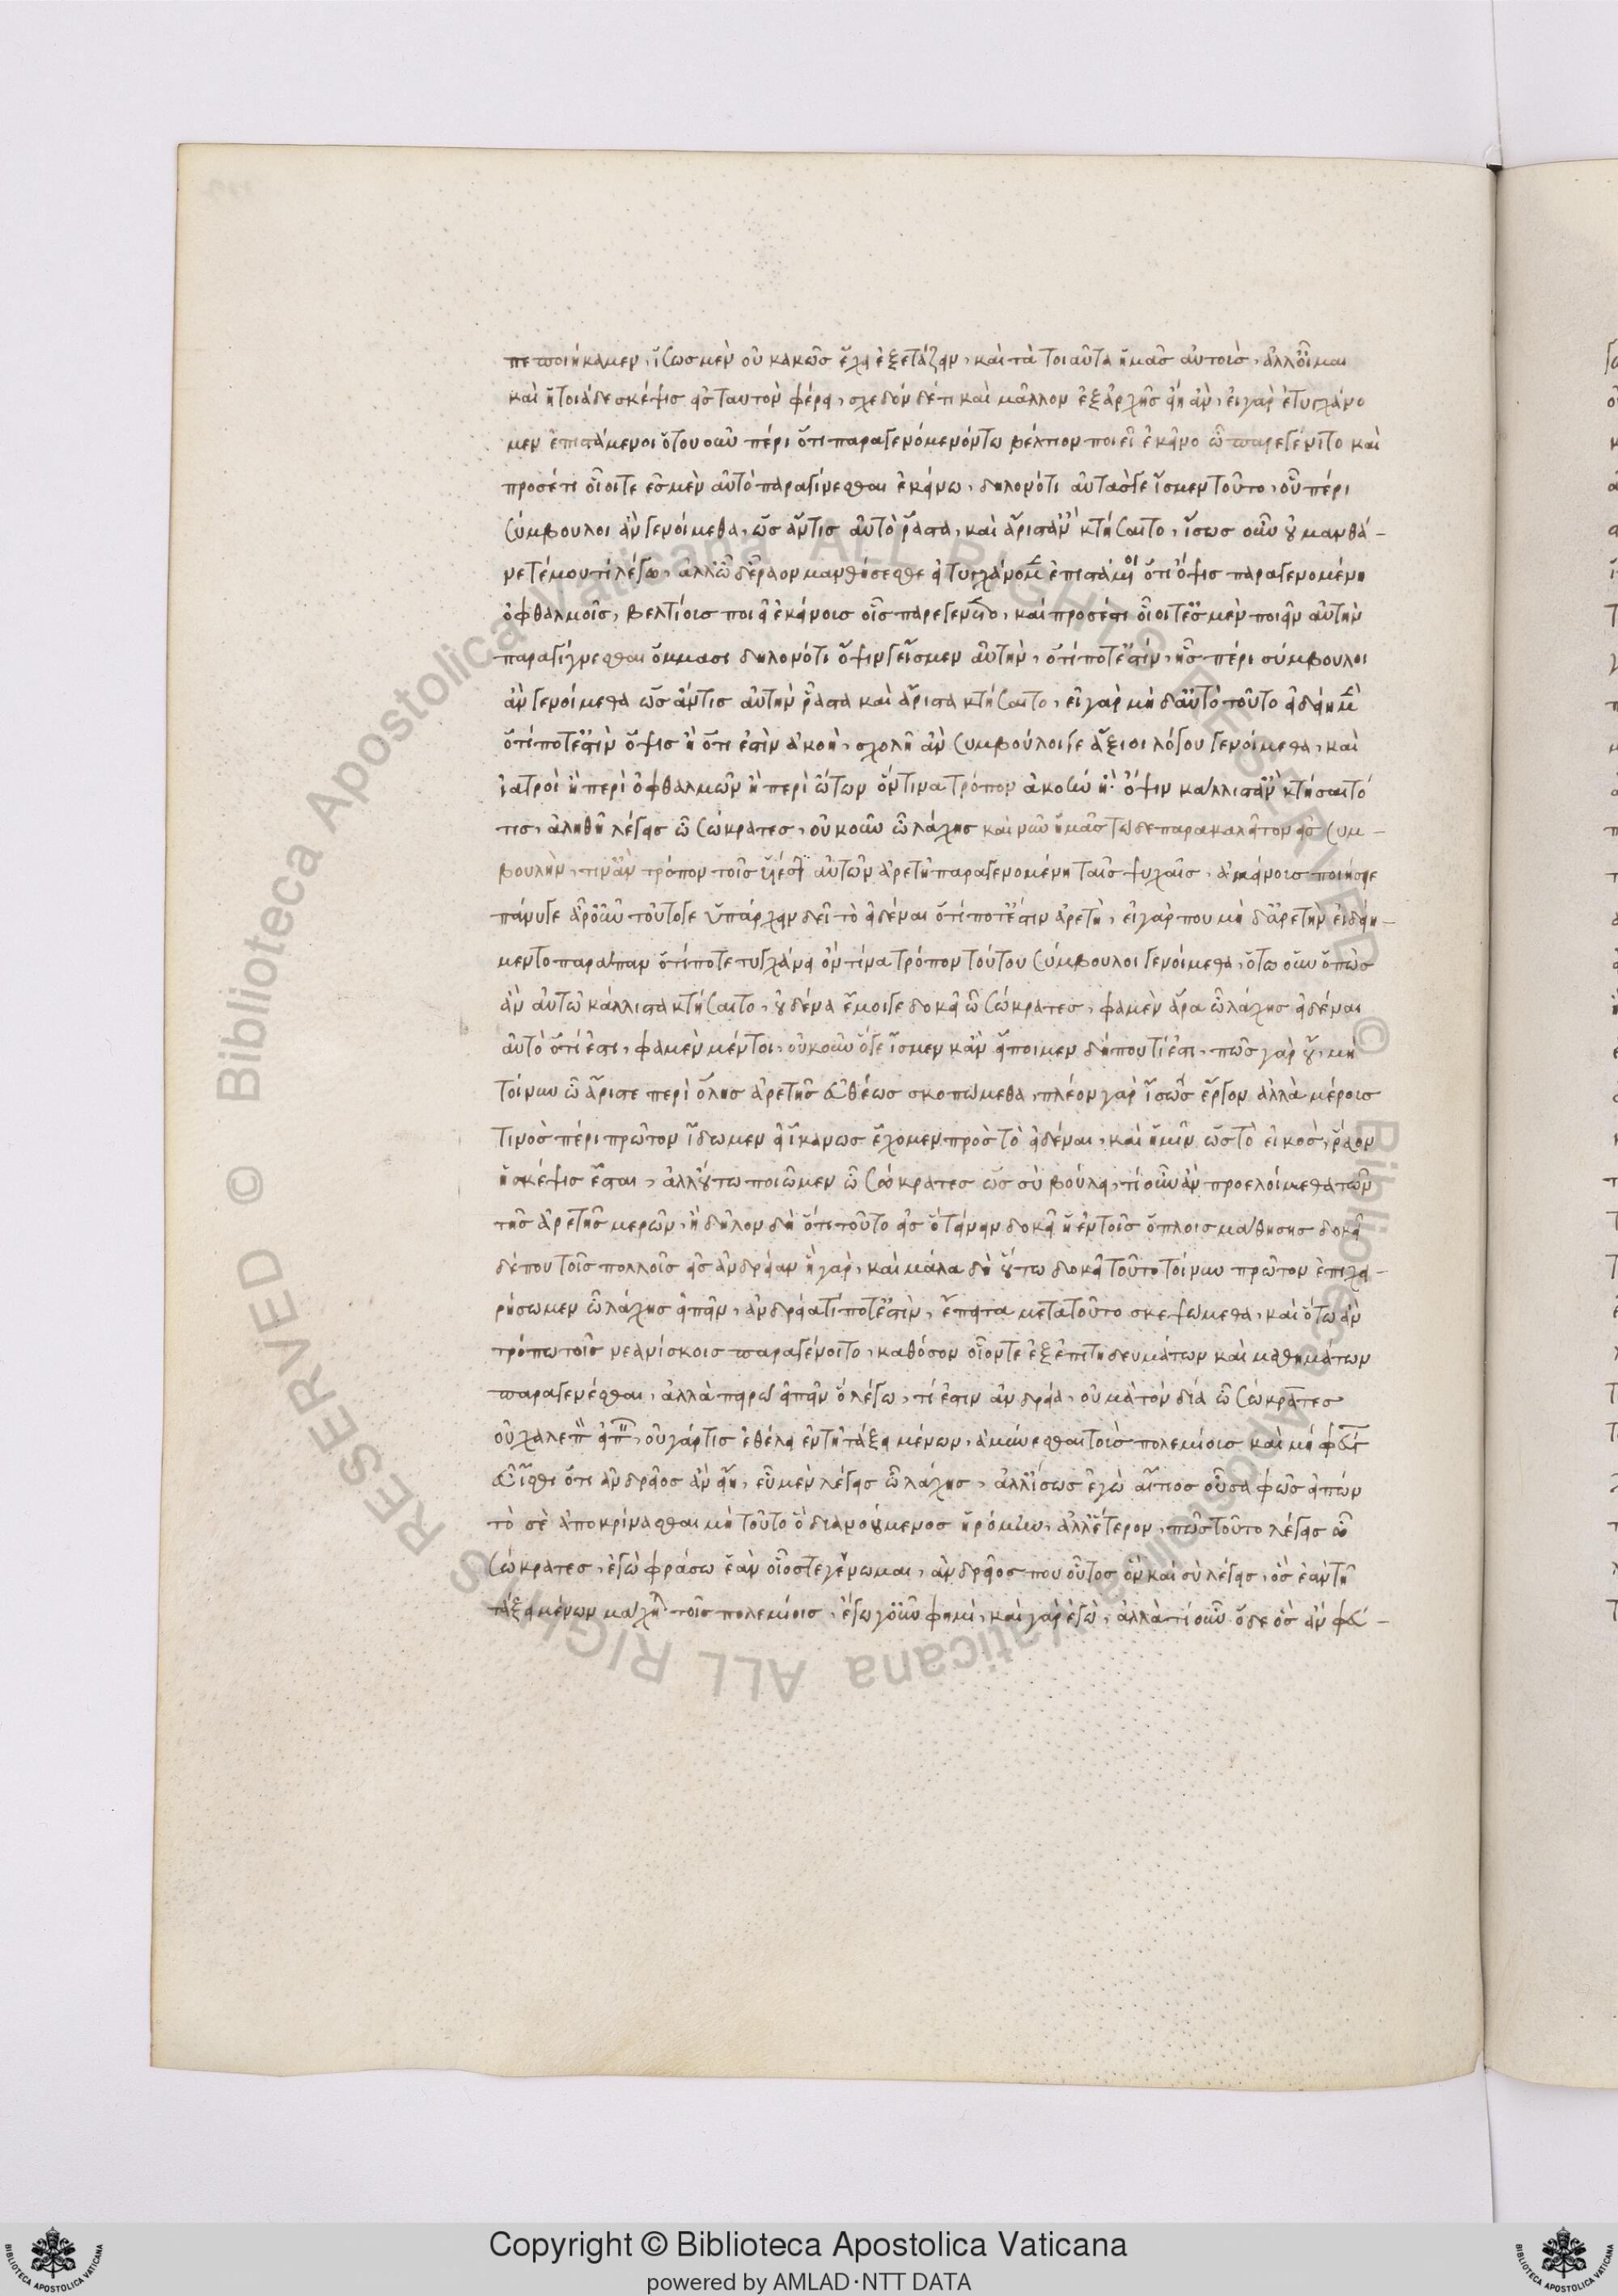 πεποιήκαμεν, ἴσως μὲν οὐ κακῶς ἔχει ἐξετάζειν, καὶ τὰ τοιαῦτα ἡμᾶς αὐτοὺς, ἀλλ' οἶμαι
καὶ ἡ τοιάδε σκέψις εἰς ταυτὸν φέρει, σχεδὸν δέτι καὶ μᾶλλον ἐξ ἀρχῆς εἴη ἂν, εἰ γὰρ ἐτυγχάνο
μεν ἐπιστάμενοι ὅτου οὖν πέρι ὅτι παραγενόμενόν τω βέλτιον ποιεῖ ἐκεῖνο ὧ παρεγένετο καὶ
προσέτι οἷοί τε ἐσμὲν αὐτὸ παραγίνεσθαι ἐκείνω, δηλονότι αὐτό γε ἴσμεν τοῦτο, οὗ πέρι
σύμβουλοι ἂν γενοίμεθα, ὡς ἄν τις αὐτὸ ῥᾶστα, καὶ ἄριστ' ἂν κτήσαιτο, ἴσως οὖν οὐ μανθά-
νετέ μου τί λέγω, ἀλλ' ὧδε ῥᾶον μαθήσεσθε εἰ τυγχάνομεν ἐπιστάμενοι ὅτι ὄψις παραγενομένη
ὀφθαλμοῖς, βελτίους ποιεῖ ἐκείνους οἷς παρεγένετο, καὶ προσέτι οἷοί τ' ἐσμὲν ποιεῖν αὐτὴν
παραγίγνεσθαι ὄμμασι δηλονότι ὄψιν γε ἴσμεν αὐτὴν, ὅτί ποτ' ἔστιν, ἧς πέρι σύμβουλοι
ἂν γενοίμεθα ὡς ἄν τις αὐτὴν ῥᾶστα καὶ ἄριστα κτήσαιτο, εἰ γὰρ μηδ' αὐτὸ τοῦτο εἰδείημεν
ὅτί ποτ' ἔστιν ὄψις ἢ ὅτι ἐστὶν ἀκοὴ, σχολῆ ἂν σύμβουλοί γε ἄξιοι λόγου γενοίμεθα, καὶ
ἰατροὶ ἢ περὶ ὀφθαλμῶν ἢ περὶ ὤτων ὅντινα τρόπον ἀκοὴν ἢ ὄψιν κάλλιστ' ἂν κτήσαιτό
τις, ἀληθῆ λέγεις ὦ σώκρατες, οὐκοῦν ὦ λάχης καὶ νῦν ἡμᾶς τώδε παρακαλεῖτον εἰς συμ-
βουλὴν, τίν' ἂν τρόπον τοῖς ὑιέσιν αὐτῶν ἀρετὴ παραγενομένη ταῖς ψυχαῖς, ἀμείνους ποιήσειε
πάνυ γε ἆρ' οὖν τοῦτό γε ὑπάρχειν δεῖ τὸ εἰδέναι ὅτί ποτ' ἔστιν ἀρετὴ, εἰ γάρ που μηδ' ἀρετὴν εἰδείη-
μεν τοπαράπαν ὅτί ποτε τυγχάνει ὃν τίνα τρόπον τούτου σύμβουλοι γενοίμεθα, ὅτω οὖν ὅπως
ἂν αὐτὼ κάλλιστα κτήσαιτο, οὐδένα ἔμοιγε δοκεῖ ὦ σώκρατες, φαμὲν ἄρα ὦ λάχης εἰδέναι
αὐτὸ ὅτί ἐστι, φαμὲν μέντοι, οὐκοῦν ὅ γε ἴσμεν κἂν εἴποιμεν δήπου τί ἐστι, πῶς γὰρ οὔ, μὴ
τοίνυν ὦ ἄριστε περὶ ὅλης ἀρετῆς εὐθέως σκοπώμεθα, πλέον γὰρ ἴσως ἔργον ἀλλὰ μέρους
τινὸς πέρι πρῶτον ἴδωμεν εἰ ἱκανῶς ἔχομεν πρὸς τὸ εἰδέναι, καὶ ἡμῖν ὡς τὸ εἰκὸς, ῥάων
ἡ σκέψις ἔσται, ἀλλ' οὕτω ποιῶμεν ὦ σώκρατες ὡς σὺ βούλει, τί οὖν ἂν προελοίμεθα τῶν
τῆς ἀρετῆς μερῶν, ἢ δῆλον δὴ ὅτι τοῦτο εἰς ὃ τείνειν δοκεῖ ἡ ἐν τοῖς ὅπλοις μάθησις δοκεῖ
δέ που τοῖς πολλοῖς εἰς ἀνδρείαν ἦ γὰρ, καὶ μάλα δὴ οὕτω δοκεῖ τοῦτο τοίνυν πρῶτον ἐπιχει-
ρήσωμεν ὦ λάχης εἰπεῖν, ἀνδρεία τί ποτ' ἔστιν, ἔπειτα μετὰ τοῦτο σκεψώμεθα, καὶ ὅτω ἂν
τρόπω τοῖς νεανίσκοις παραγένοιτο, καθόσον οἷόν τε ἐξ ἐπιτηδευμάτων καὶ μαθημάτων
παραγενέσθαι, ἀλλὰ πειρῶ εἰπεῖν ὃ λέγω, τί ἐστιν ἀνδρεία, οὐ μὰ τὸν δία ὦ σώκρατες
οὐ χαλεπὸν εἰπεῖν, οὐ γάρ τις ἐθέλει ἐν τῆ τάξει μένων, ἀμύνεσθαι τοὺς πολεμίους καὶ μὴ φεύγει
εὖ ἴσθι ὅτι ἀνδρεῖος ἂν εἴη, εὖ μὲν λέγεις ὦ λάχης, ἀλλ' ἴσως ἐγὼ αἴτιος οὐ σαφῶς εἰπών
τὸ σὲ ἀποκρίνασθαι μὴ τοῦτο ὃ διανοούμενος ἠρόμην, ἀλλ' ἕτερον, πῶς τοῦτο λέγεις ὦ
σώκρατες, ἐγὼ φράσω ἐὰν οἷός τε γένωμαι, ἀνδρεῖός που οὗτος ὃν καὶ σὺ λέγεις, ὃς ἐὰν τῆ
τάξει μένων μάχηται τοῖς πολεμίοις, ἐγὼ γοῦν φημὶ, καὶ γὰρ ἐγὼ, ἀλλὰ τί οὖν ὅδε ὃς ἂν φεύ-
Copyright © Biblioteca Apostolica Vaticana
powered by AMLAD·NTT DATA